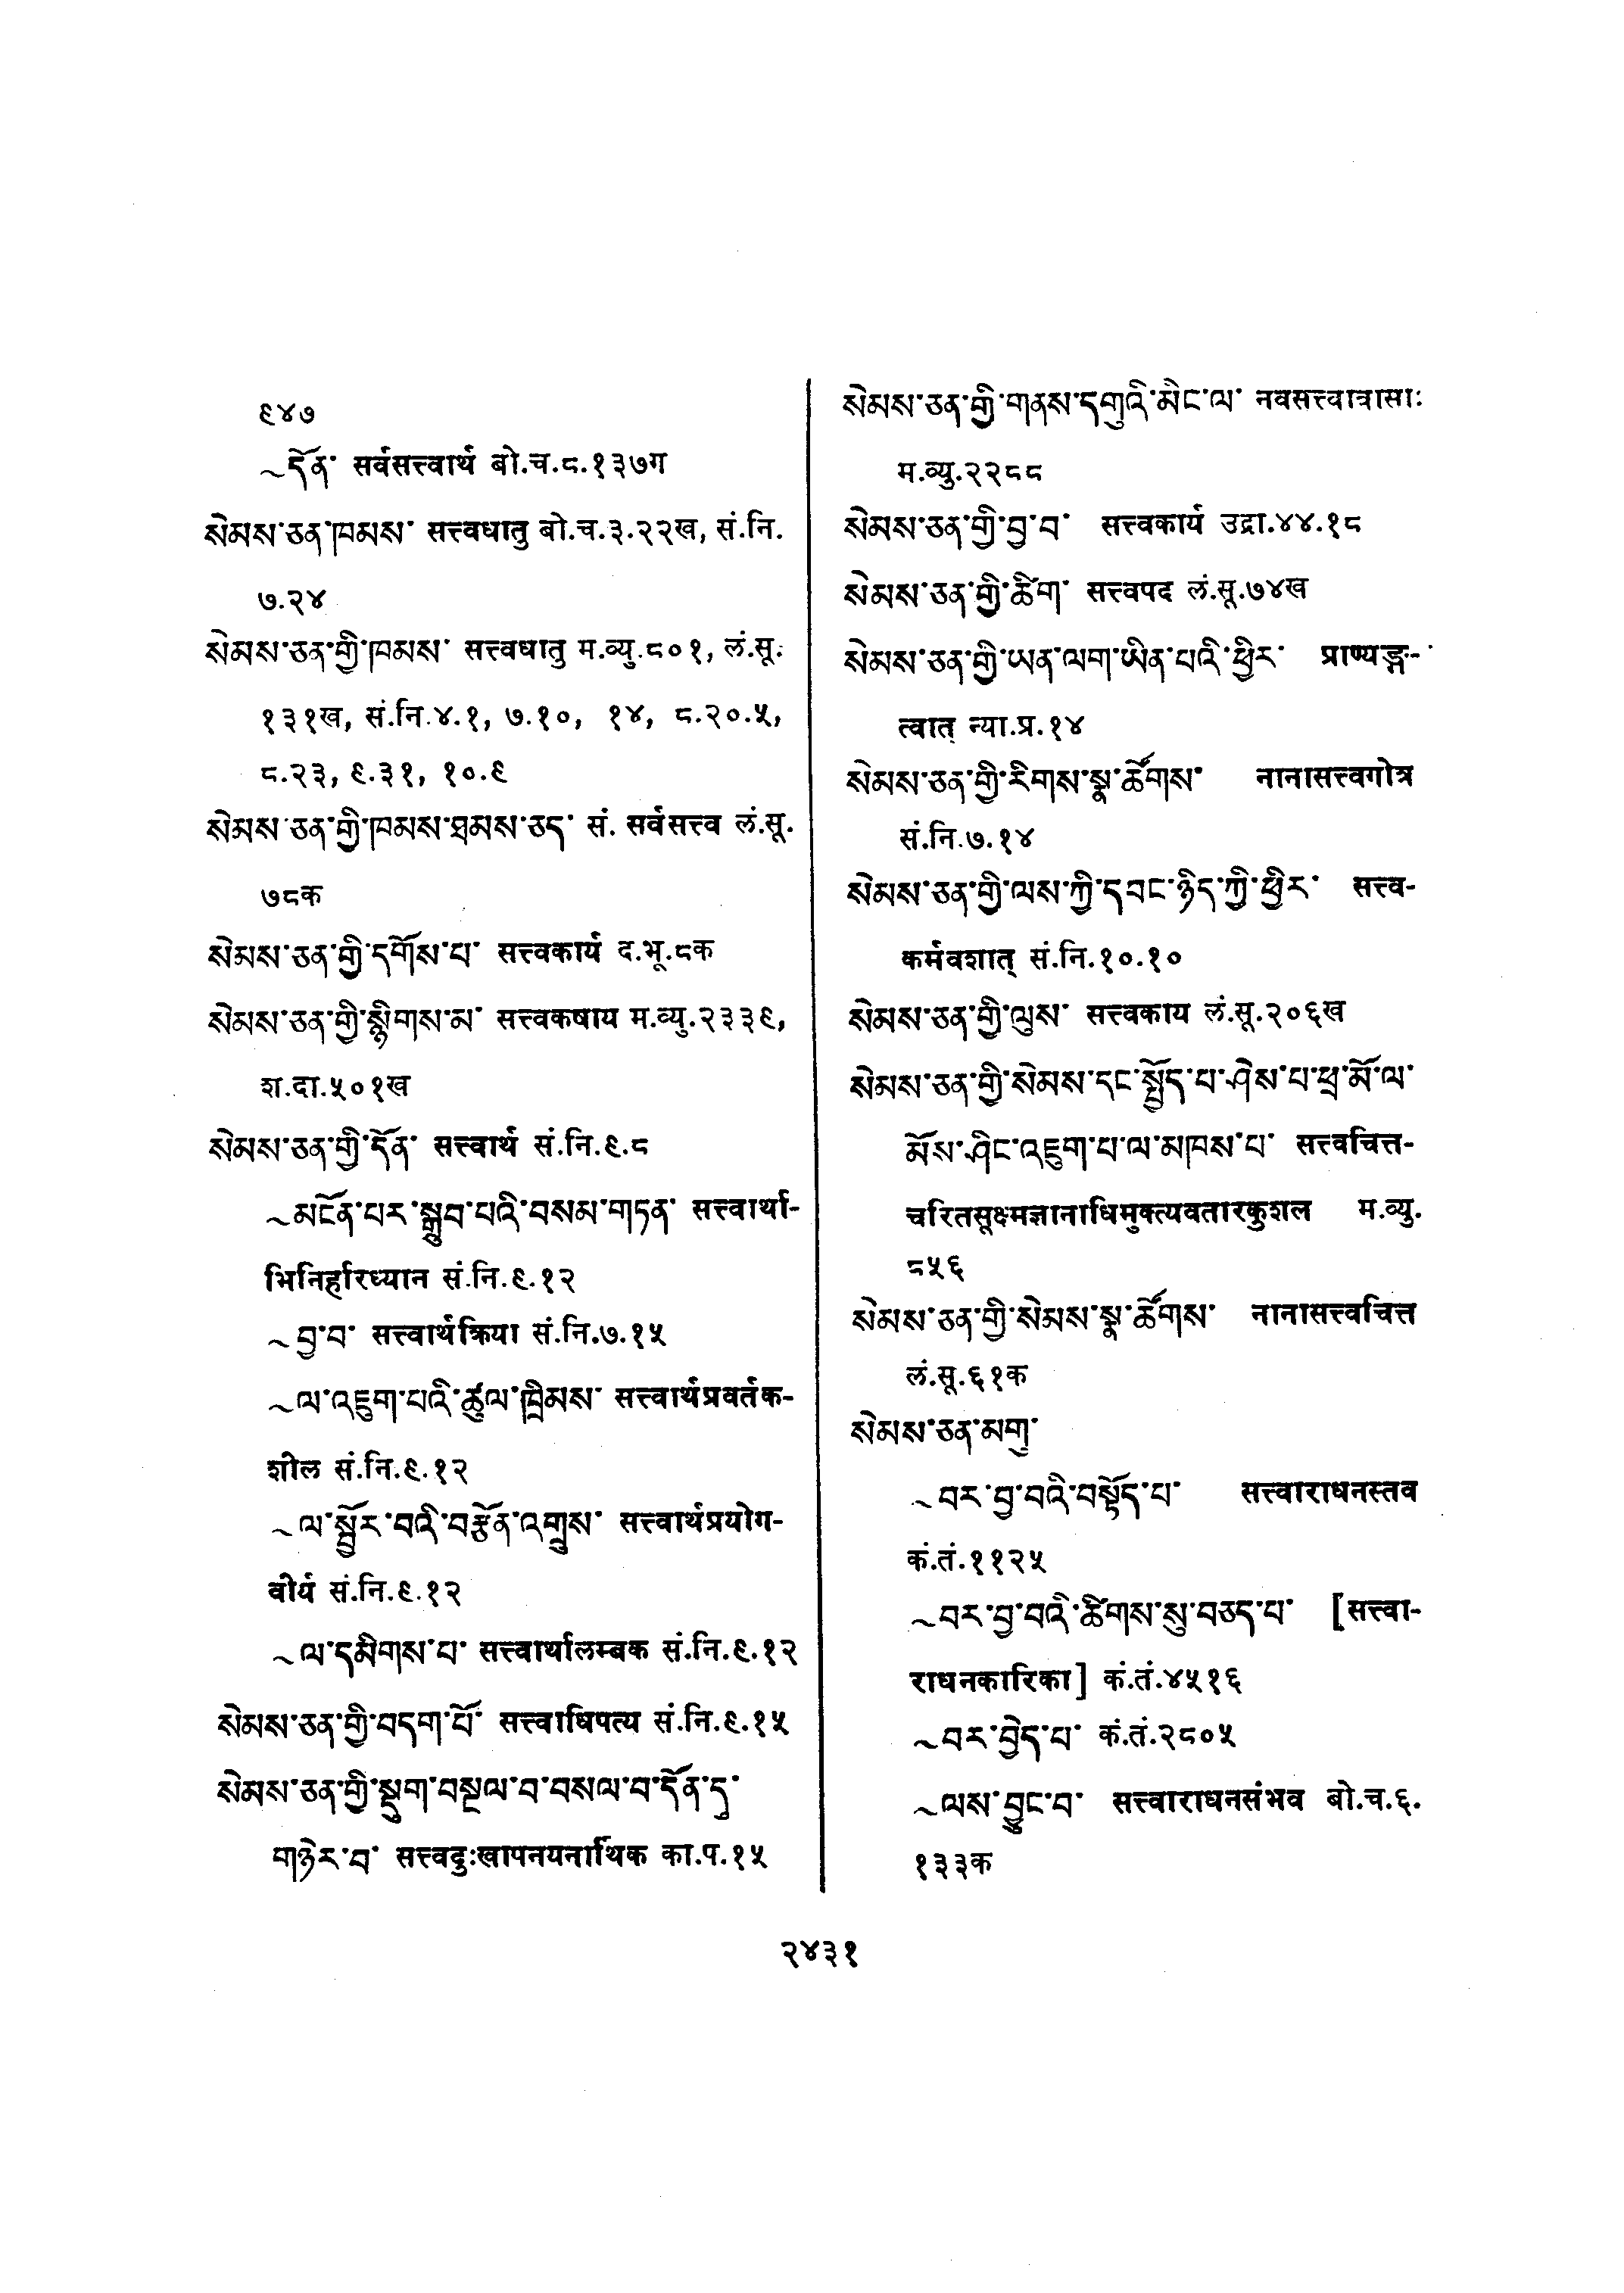 ९४७
~དོན་ सर्वसत्त्वार्थ बो.च.८.१३७ग
སེམས་ཅན་ཁམས་ सत्त्वधातु बो.च.३.२२ख, सं.नि.
७.२४
སེམས་ཅན་གྱི་ཁམས་ सत्त्वधातु म.व्यु.८०१, लं.सू.
१३१ख, सं.नि.४.१, ७.१०, १४, ८.२०.५,
८.२३, ९.३१, १०.९
སེམས་ཅན་གྱི་ཁམས་ཐམས་ཅད་ सं. सर्वसत्त्व लं.सू.
७८क
སེམས་ཅན་གྱི་དགོས་པ་ सत्त्वकार्य द.भू.८क
སེམས་ཅན་གྱི་སྙིགས་མ་ सत्त्वकषाय म.व्यु.२३३९,
श.दा.५०१ख
སེམས་ཅན་གྱི་དོན་ सत्त्वार्थ सं.नि.९.८
~མངོན་པར་སྒྲུབ་པའི་བསམ་གཏན་ सत्त्वार्था-
भिनिर्हारध्यान सं.नि.९.१२
~བྱ་བ་ सत्त्वार्थक्रिया सं.नि.७.१५
~ལ་འཇུག་པའི་ཚུལ་ཁྲིམས་ सत्त्वार्थप्रवर्तक-
शील सं.नि.९.१२
~ལ་སྦྱོར་བའི་བརྩོན་འགྲུས་ सत्त्वार्थप्रयोग-
वीर्य सं.नि.९.१२
~ལ་དམིགས་པ་ सत्त्वार्थालम्बक सं.नि.९.१२
སེམས་ཅན་གྱི་བདག་པོ་ सत्त्वाधिपत्य सं.नि.९.१५
སེམས་ཅན་གྱི་སྡུག་བསྔལ་བ་བསལ་བ་དོན་དུ་
གཉེར་བ་ सत्त्वदुःखापनयनार्थिक का.प.१५
སེམས་ཅན་གྱི་གནས་དགུའི་མིང་ལ་ नवसत्त्वात्रासाः
म.व्यु.२२८८
སེམས་ཅན་གྱི་བྱ་བ་ सत्त्वकार्य उद्रा.४४.१८
སེམས་ཅན་གྱི་ཚིག་ सत्त्वपद लं.सू.७४ख
སེམས་ཅན་གྱི་ཡན་ལག་ཡིན་པའི་ཕྱིར་ प्राण्यङ्ग-
त्वात् न्या.प्र.१४
སེམས་ཅན་གྱི་རིགས་སྣ་ཚོགས་ नानासत्त्वगोत्र
सं.नि.७.१४
སེམས་ཅན་གྱི་ལས་ཀྱི་དབང་ཉིད་ཀྱི་ཕྱིར་ सत्त्व-
कर्मवशात् सं.नि.१०.१०
སེམས་ཅན་གྱི་ལུས་ सत्त्वकाय लं.सू.२०६ख
སེམས་ཅན་གྱི་སེམས་དང་སྤྱོད་པ་ཤེས་པ་ཕྲ་མོ་ལ་
མོས་ཤིང་འཇུག་པ་ལ་མཁས་པ་ सत्त्वचित्त-
चरितसूक्ष्मज्ञानाधिमुक्त्यवतारकुशल म.व्यु.
८५६
སེམས་ཅན་གྱི་སེམས་སྣ་ཚོགས་ नानासत्त्वचित्त
लं.सू.६१क
སེམས་ཅན་མགུ་
~བར་བྱ་བའི་བསྟོད་པ་ सत्त्वाराधनस्तव
कं.तं.११२५
~བར་བྱ་བའི་ཚིགས་སུ་བཅད་པ་ [सत्त्वा-
राधनकारिका] कं.तं.४५१६
~བར་བྱེད་པ་ कं.तं.२८०५
~ལས་བྱུང་བ་ सत्त्वाराधनसंभव बो.च.६.
१३३क
२४३१